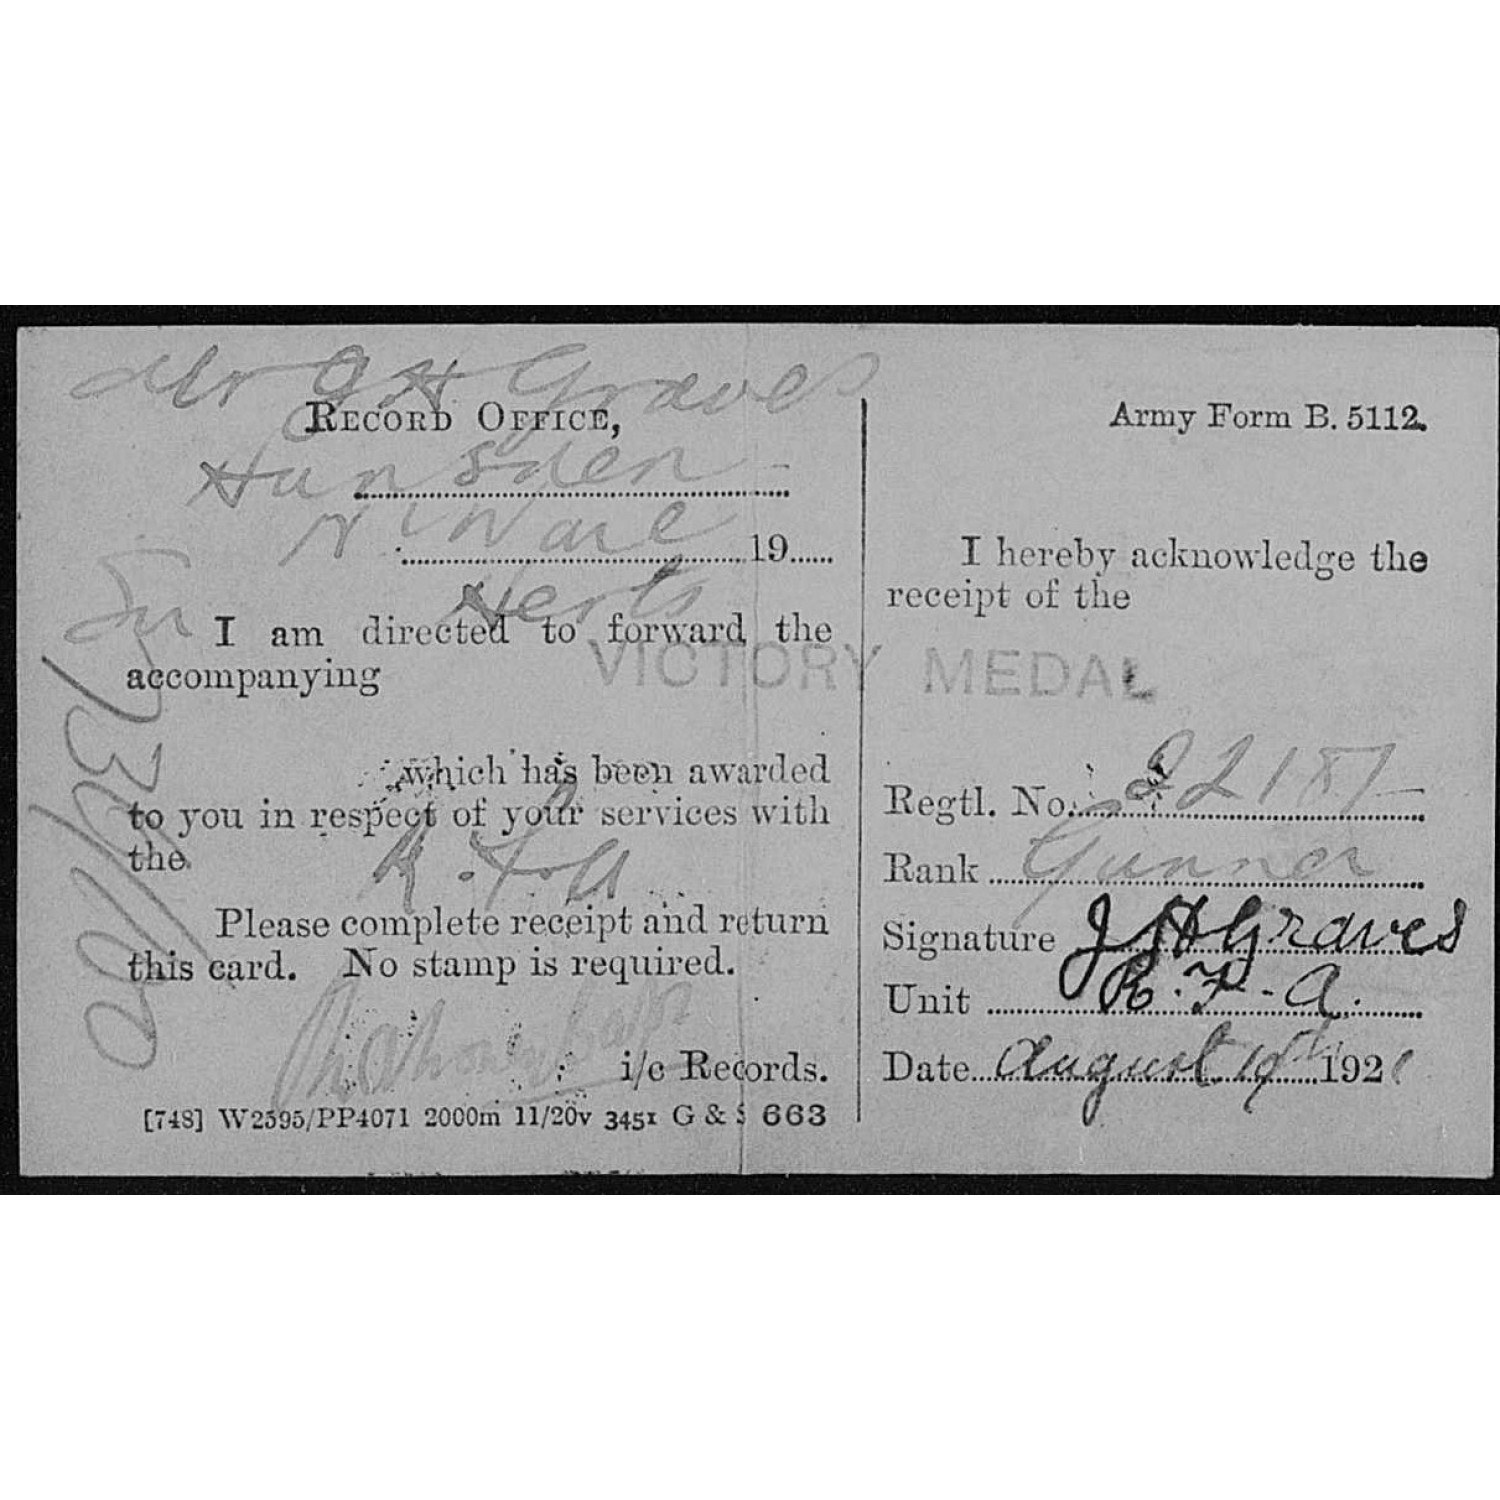 Mr J H Graves
RECORD OFFICE,
Hunsden
Nr Ware
19......
Herts
I am directed to forward the
accompanying
VICTORY MEDAL
which has been awarded
to you in respect of your services with
the R.F.A
Please complete receipt and return
this card. No stamp is required.
i/c Records.
[748] W2595/PP4071 2000m 11/20v 3451 G & S 663
Army Form B. 5112.
I hereby acknowledge the
receipt of the
Regtl. No. 22187
Rank Gunner
Signature J H Graves
Unit R.F.A.
Date August 1921